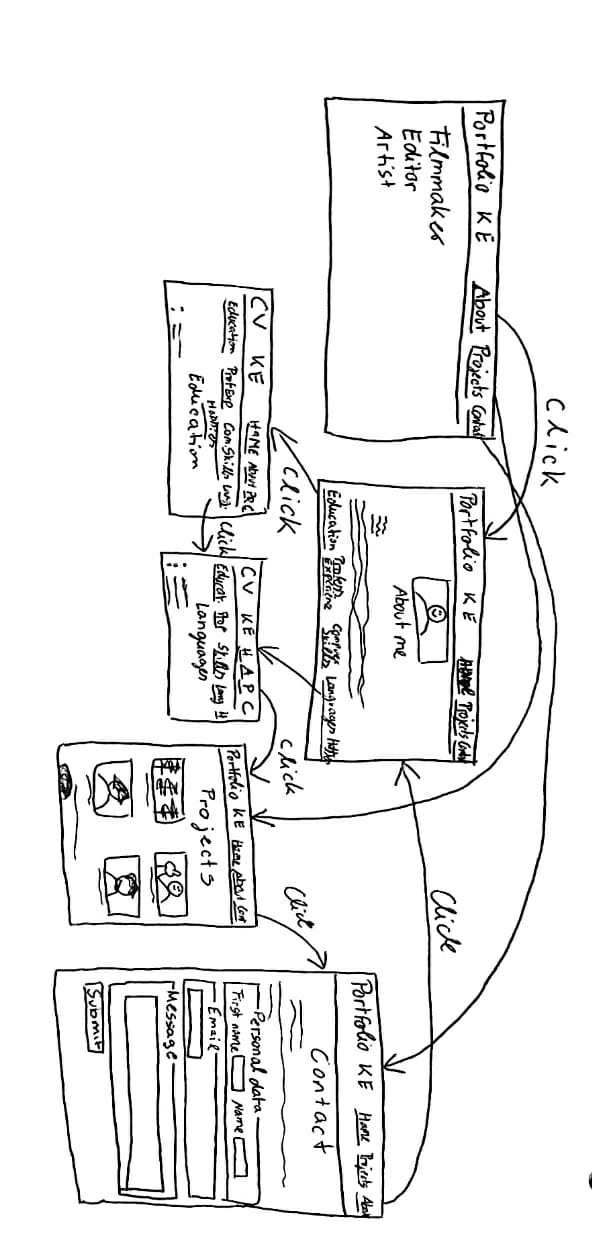 Portfolio KE About Projects Contact
Filmmaker
Editor
Artist
Click
Portfolio KE Home Projects Contact
About me
Education Profess. Experience Computer Skills Languages
Click
CV KE HOME About P C
Education Prof Exp Com. Skills Lang.
Education
Click
CV KE H A P C
Educat. Prof Skills Lang H
Languages
Click
Portfolio KE Home About Con
Projects
Click
Click
Portfolio KE Home Projects About
Contact
Personal data
First name Name
Email
Message
Submit